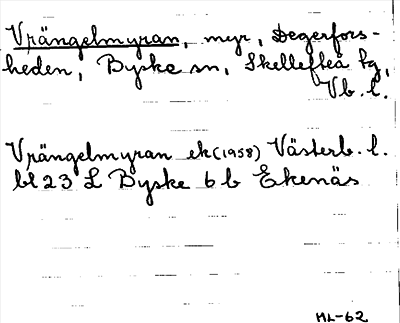 Vrängelmyran, myr, Degerfors-
heden, Byske sn, Skellefteå tg,
Vb. l.
Vrängelmyran ek (1958) Västerb. l.
bl 23 L Byske 6 b Ekenäs
HL-62